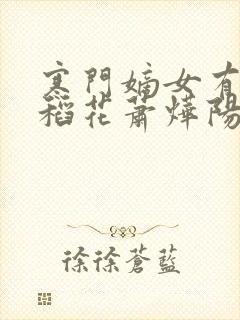 寒門嫡女有
稻花蕭燁陽
徐徐蒼藍